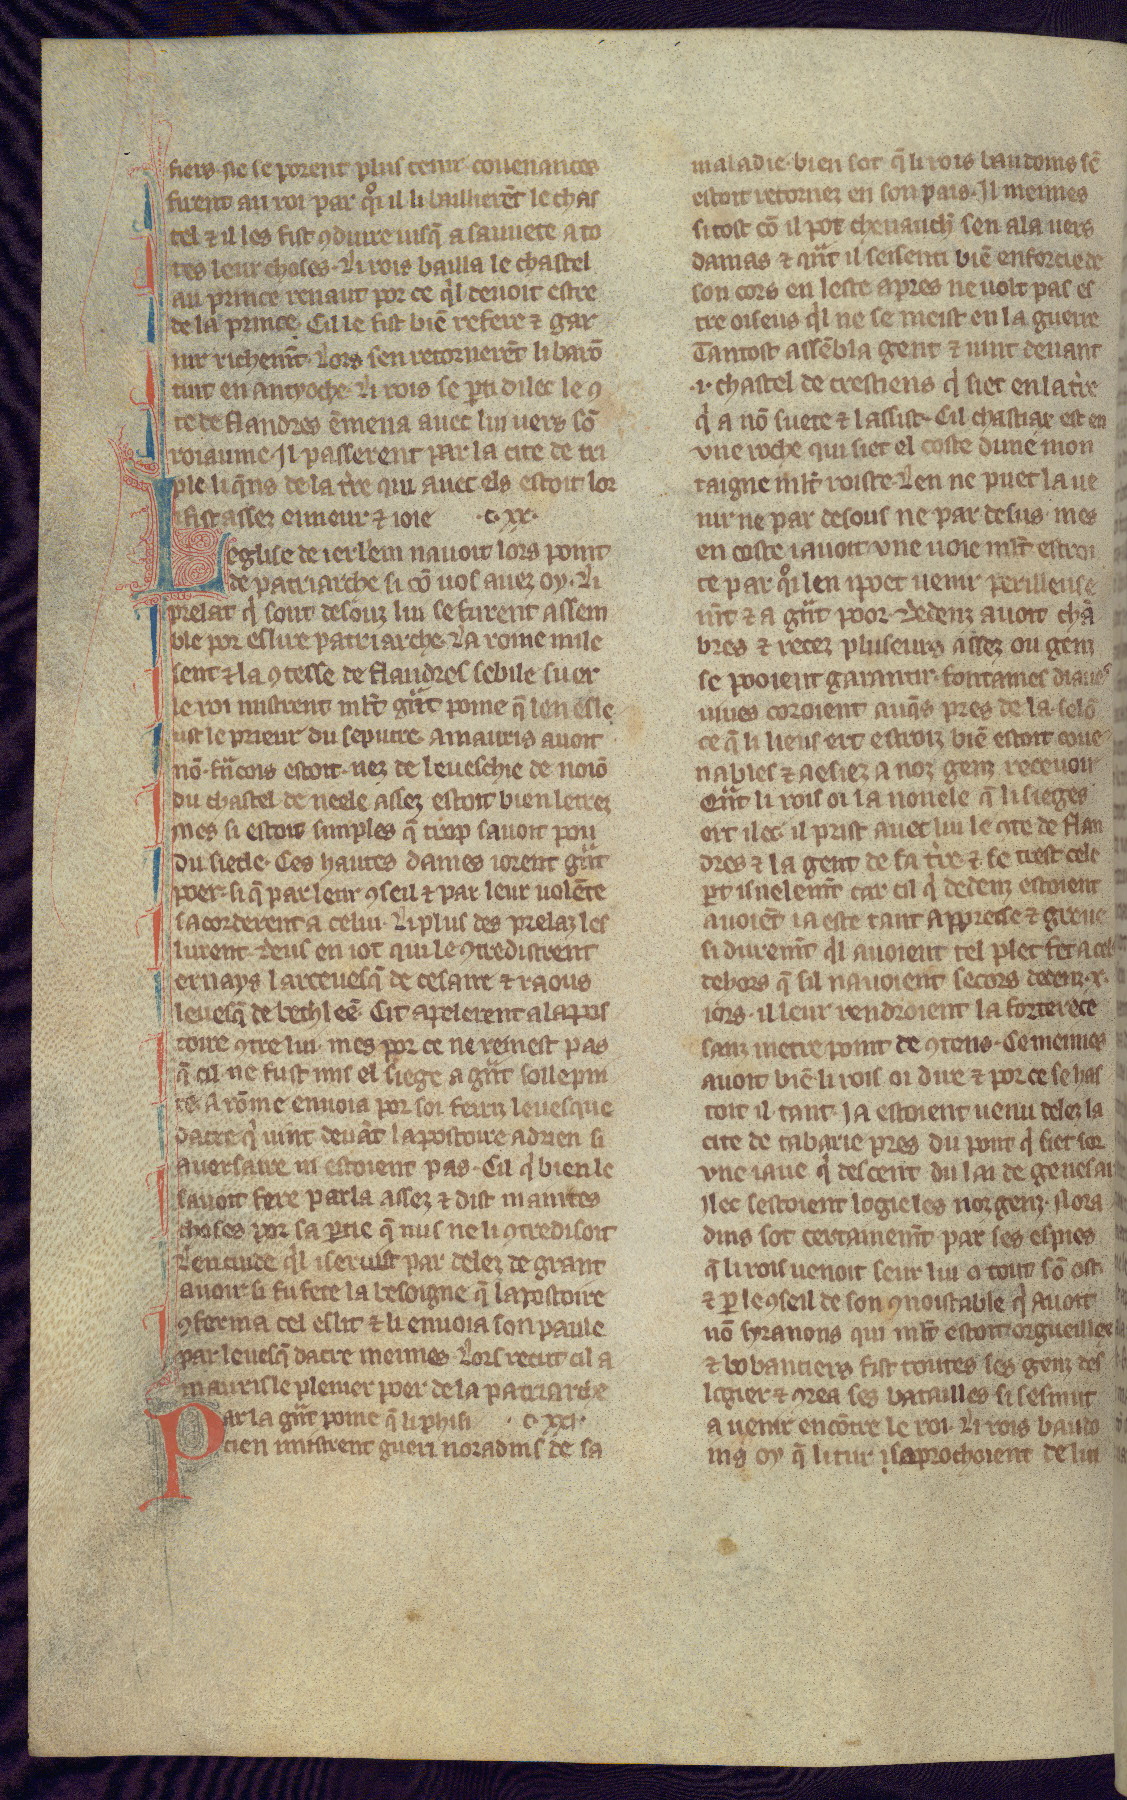 fiers. Ne se porent plus tenir. couenances
furent au roi par qͦi il li baillierēt le chas
tel ⁊ il les fist ꝯduire iusq̄ a sauuete a to
tes leur choses. Li rois bailla le chastel
au prince renaut por ce qͥl deuoit estre
de la prince. Cil le fist biē refere ⁊ gar
nir richemēt. Lors sen retornerēt li barō
tuit en antyoche. Li rois se ꝑti dilec le ꝯ
te de flandres ēmena auec lui vers sō
roiaume. Il passerent par la cite de tri
ple li q̄ns de la tr̄e qui auec els estoit lor
i fist assez enneur ⁊ ioie .c.xx.
Leglise de ierl'em nauoit lors point
de patriarche si cō vos auez oy. Li
prelat qͥ sont desouz lui se furent assem
ble por eslire patriarche. La roine mile
sent ⁊ la ꝯtesse de flandres sebile suer
le roi mistrent ml't gr̄nt poine q̄ len esle
ust le prieur du sepucre. Amauris auoit
nō. frācois estoit. nez de leueschie de noiō
du chastel de neele assez estoit bien letrez
mes si estoit simples q̄ trop sauoit pou
du siecle. Ces hautes dames iorent gr̄nt
poer. si q̄ par leur ꝯseil ⁊ par leur uolēte
sacorderent a celui. Li plus des prelaz les
lurent. Deus en iot qui le ꝯtredistrent
ernays larceuesq̄ de cesaire ⁊ raous
leuesq̄ de bethleē. Cit apelerent a lapos
toire ꝯtre lui. mes por ce ne remest pas
q̄ cil ne fust mis el siege a gr̄nt sollepni
te. A rōme enuoia por soi ferri leuesque
dacre qͥ uint deuāt lapostoire adrien si
auersaire ni estoient pas. Cil qͥ bien le
sauoit fere parla assez ⁊ dist maintes
choses por sa ꝑtie q̄ nus ne li ꝯtredisoit
Len cuide qͥl i seruist par delez de grant
auoir si fu fete la besoigne q̄ lapostoire
ꝯferma cel eslit ⁊ li enuoia son paule
par leuesq̄ dacre meimes. Lors recut cil a
mauris le plenier poer de la patriarche
Par la gr̄nt poine q̄ li phisi .c.xxi.
cien mistrent gueri noradins de sa
maladie. bien sot q̄ li rois baudoins sē
estoit retornez en son pais. Il meimes
si tost cō il pot cheuauch' sen ala uers
damas ⁊ qn̄t il se senti biē enforcie de
son cors en leste apres ne uolt pas es
tre oiseus qͥl ne se meist en la guerre
Tantost assēbla gent ⁊ uint deuant
.i. chastel de crestiens qͥ siet en la tr̄e
qͥ a nō suete ⁊ lassist. Cil chastiax est en
vne roche qui siet el coste dune mon
taigne ml't roiste. Len ne puet la ue
nir ne par desous ne par desus. mes
en coste i auoit vne uoie ml't estroi
te par qͦi len i poet uenir perilleuse
mēt ⁊ a gr̄nt poor. Dedenz auoit chā
bres ⁊ recez pluseurs assez ou genz
se pooient garantir. fontaines diaues
uiues coroient auq̄s pres de la. selō
ce q̄ li lieus ert estroiz biē estoit coue
nables ⁊ aesiez a noz genz receuoir
Qn̄t li rois oi la nouele q̄ li sieges
ert ilec. il prist auec lui le ꝯte de flan
dres ⁊ la gent de sa tr̄e. ⁊ se trest cele
ꝑt isnelemēt car cil qͥ dedenz estoient
auoiēt ia este tant appresse ⁊ greue
si duremēt qͥl auoient tel plet fet a cels
dehors q̄ sil nauoient secors dedenz .x.
iors. il leur rendroient la forterece
sanz metre point de ꝯtens. Ce meimes
auoit biē li rois oi dire ⁊ por ce se has
toit il tant. Ia estoient uenu delez la
cite de tabarie pres du pont qͥ siet sor
vne iaue qͥ descent du lai de genesar
Ilec sestoient logie les noz genz. Nora
dins sot certainemēt par ses espies
q̄ li rois uenoit seur lui o tout sō ost
⁊ ꝑ le ꝯseil de son ꝯnoistable qͥ auoit
nō syranons qui ml't estoit orgueillex
⁊ bobanciers fist toutes ses genz des
logier ⁊ ꝯrea ses batailles si lesmut
a uenir encōtre le roi. Li rois baudo
ins oy q̄ li turc isaprochoient de lui